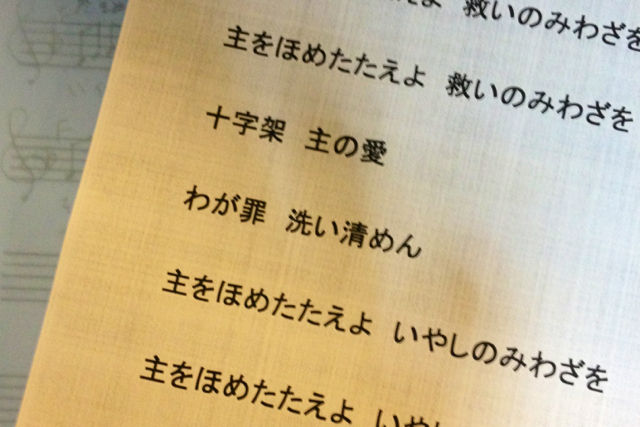 えよ 救いのみわざを
主をほめたたえよ 救いのみわざを
十字架 主の愛
わが罪 洗い清めん
主をほめたたえよ いやしのみわざを
主をほめたたえよ いやし